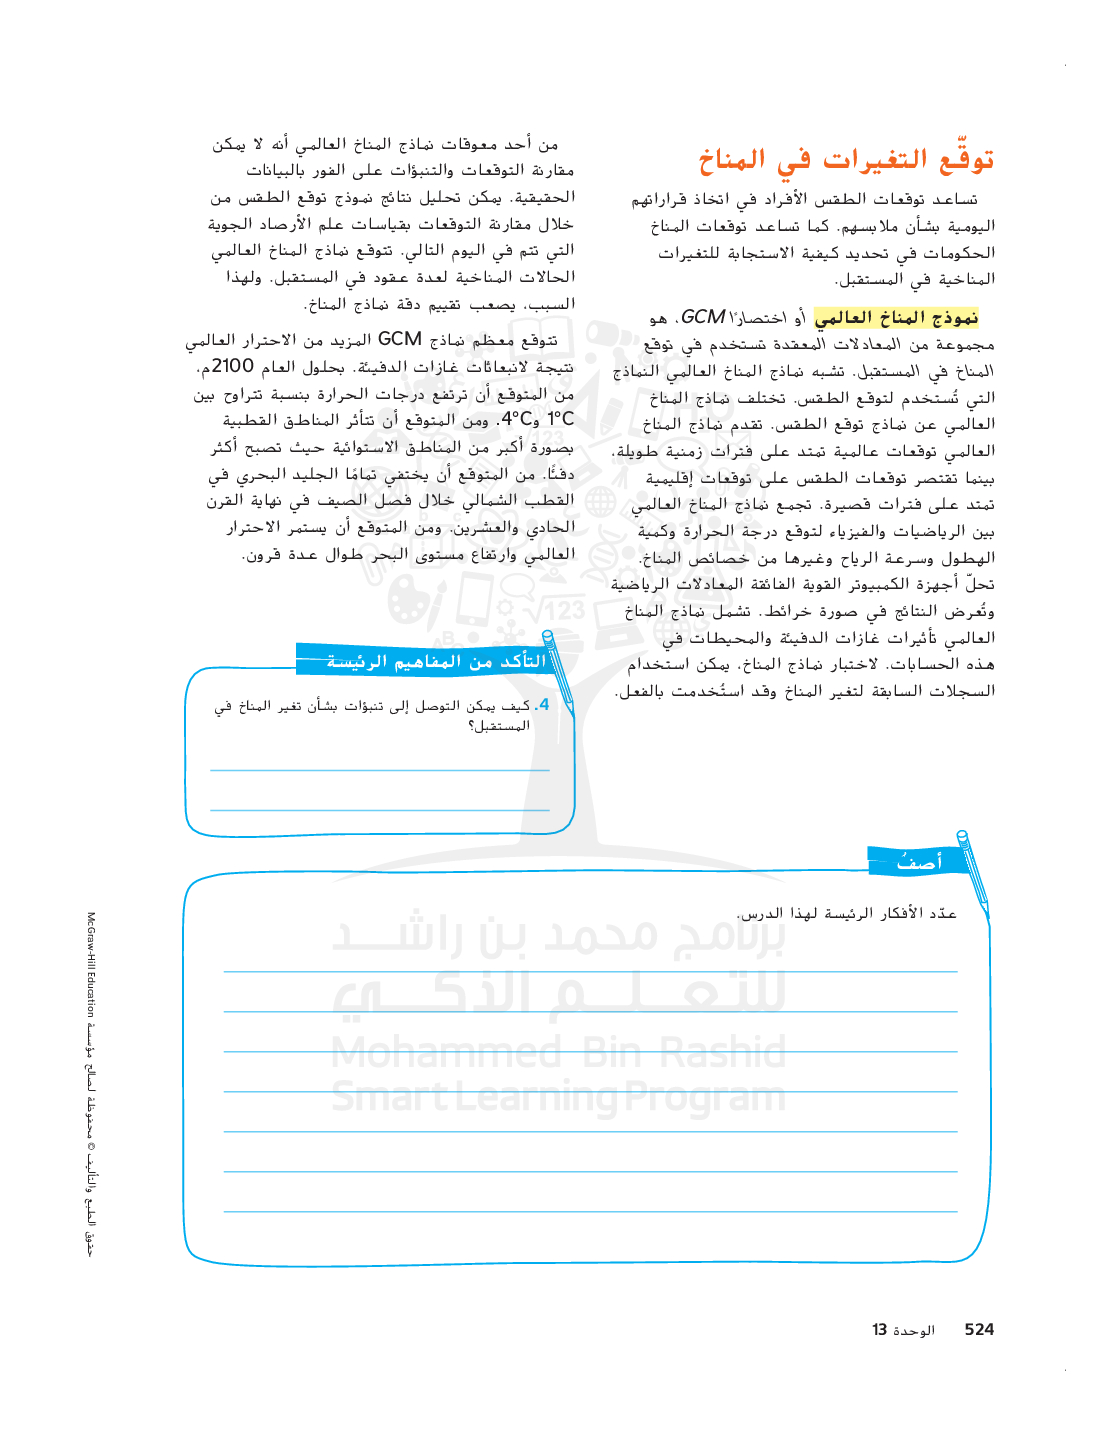 توقّع التغيرات في المناخ
تساعد توقعات الطقس الأفراد في اتخاذ قراراتهم
اليومية بشأن ملابسهم. كما تساعد توقعات المناخ
الحكومات في تحديد كيفية الاستجابة للتغيرات
المناخية في المستقبل.
نموذج المناخ العالمي أو اختصارًا GCM، هو
مجموعة من المعادلات المعقدة تستخدم في توقع
المناخ في المستقبل. تشبه نماذج المناخ العالمي النماذج
التي تُستخدم لتوقع الطقس. تختلف نماذج المناخ
العالمي عن نماذج توقع الطقس. تقدم نماذج المناخ
العالمي توقعات عالمية تمتد على فترات زمنية طويلة،
بينما تقتصر توقعات الطقس على توقعات إقليمية
تمتد على فترات قصيرة. تجمع نماذج المناخ العالمي
بين الرياضيات والفيزياء لتوقع درجة الحرارة وكمية
الهطول وسرعة الرياح وغيرها من خصائص المناخ.
تحلّ أجهزة الكمبيوتر القوية الفائقة المعادلات الرياضية
وتُعرض النتائج في صورة خرائط. تشمل نماذج المناخ
العالمي تأثيرات غازات الدفيئة والمحيطات في
هذه الحسابات. لاختبار نماذج المناخ، يمكن استخدام
السجلات السابقة لتغير المناخ وقد استُخدمت بالفعل.
من أحد معوقات نماذج المناخ العالمي أنه لا يمكن
مقارنة التوقعات والتنبؤات على الفور بالبيانات
الحقيقية. يمكن تحليل نتائج نموذج توقع الطقس من
خلال مقارنة التوقعات بقياسات علم الأرصاد الجوية
التي تتم في اليوم التالي. تتوقع نماذج المناخ العالمي
الحالات المناخية لعدة عقود في المستقبل. ولهذا
السبب، يصعب تقييم دقة نماذج المناخ.
تتوقع معظم نماذج GCM المزيد من الاحترار العالمي
نتيجة لانبعاثات غازات الدفيئة. بحلول العام 2100م،
من المتوقع أن ترتفع درجات الحرارة بنسبة تتراوح بين
1°C و4°C. ومن المتوقع أن تتأثر المناطق القطبية
بصورة أكبر من المناطق الاستوائية حيث تصبح أكثر
دفئًا. من المتوقع أن يختفي تمامًا الجليد البحري في
القطب الشمالي خلال فصل الصيف في نهاية القرن
الحادي والعشرين. ومن المتوقع أن يستمر الاحترار
العالمي وارتفاع مستوى البحر طوال عدة قرون.
التأكد من المفاهيم الرئيسة
4. كيف يمكن التوصل إلى تنبؤات بشأن تغير المناخ في
المستقبل؟
أصفُ
عدّد الأفكار الرئيسة لهذا الدرس.
برنامج محمد بن راشد
للتعلم الذكي
Mohammed Bin Rashid
Smart Learning Program
حقوق الطبع والتأليف © محفوظة لصالح مؤسسة McGraw-Hill Education
524 الوحدة 13